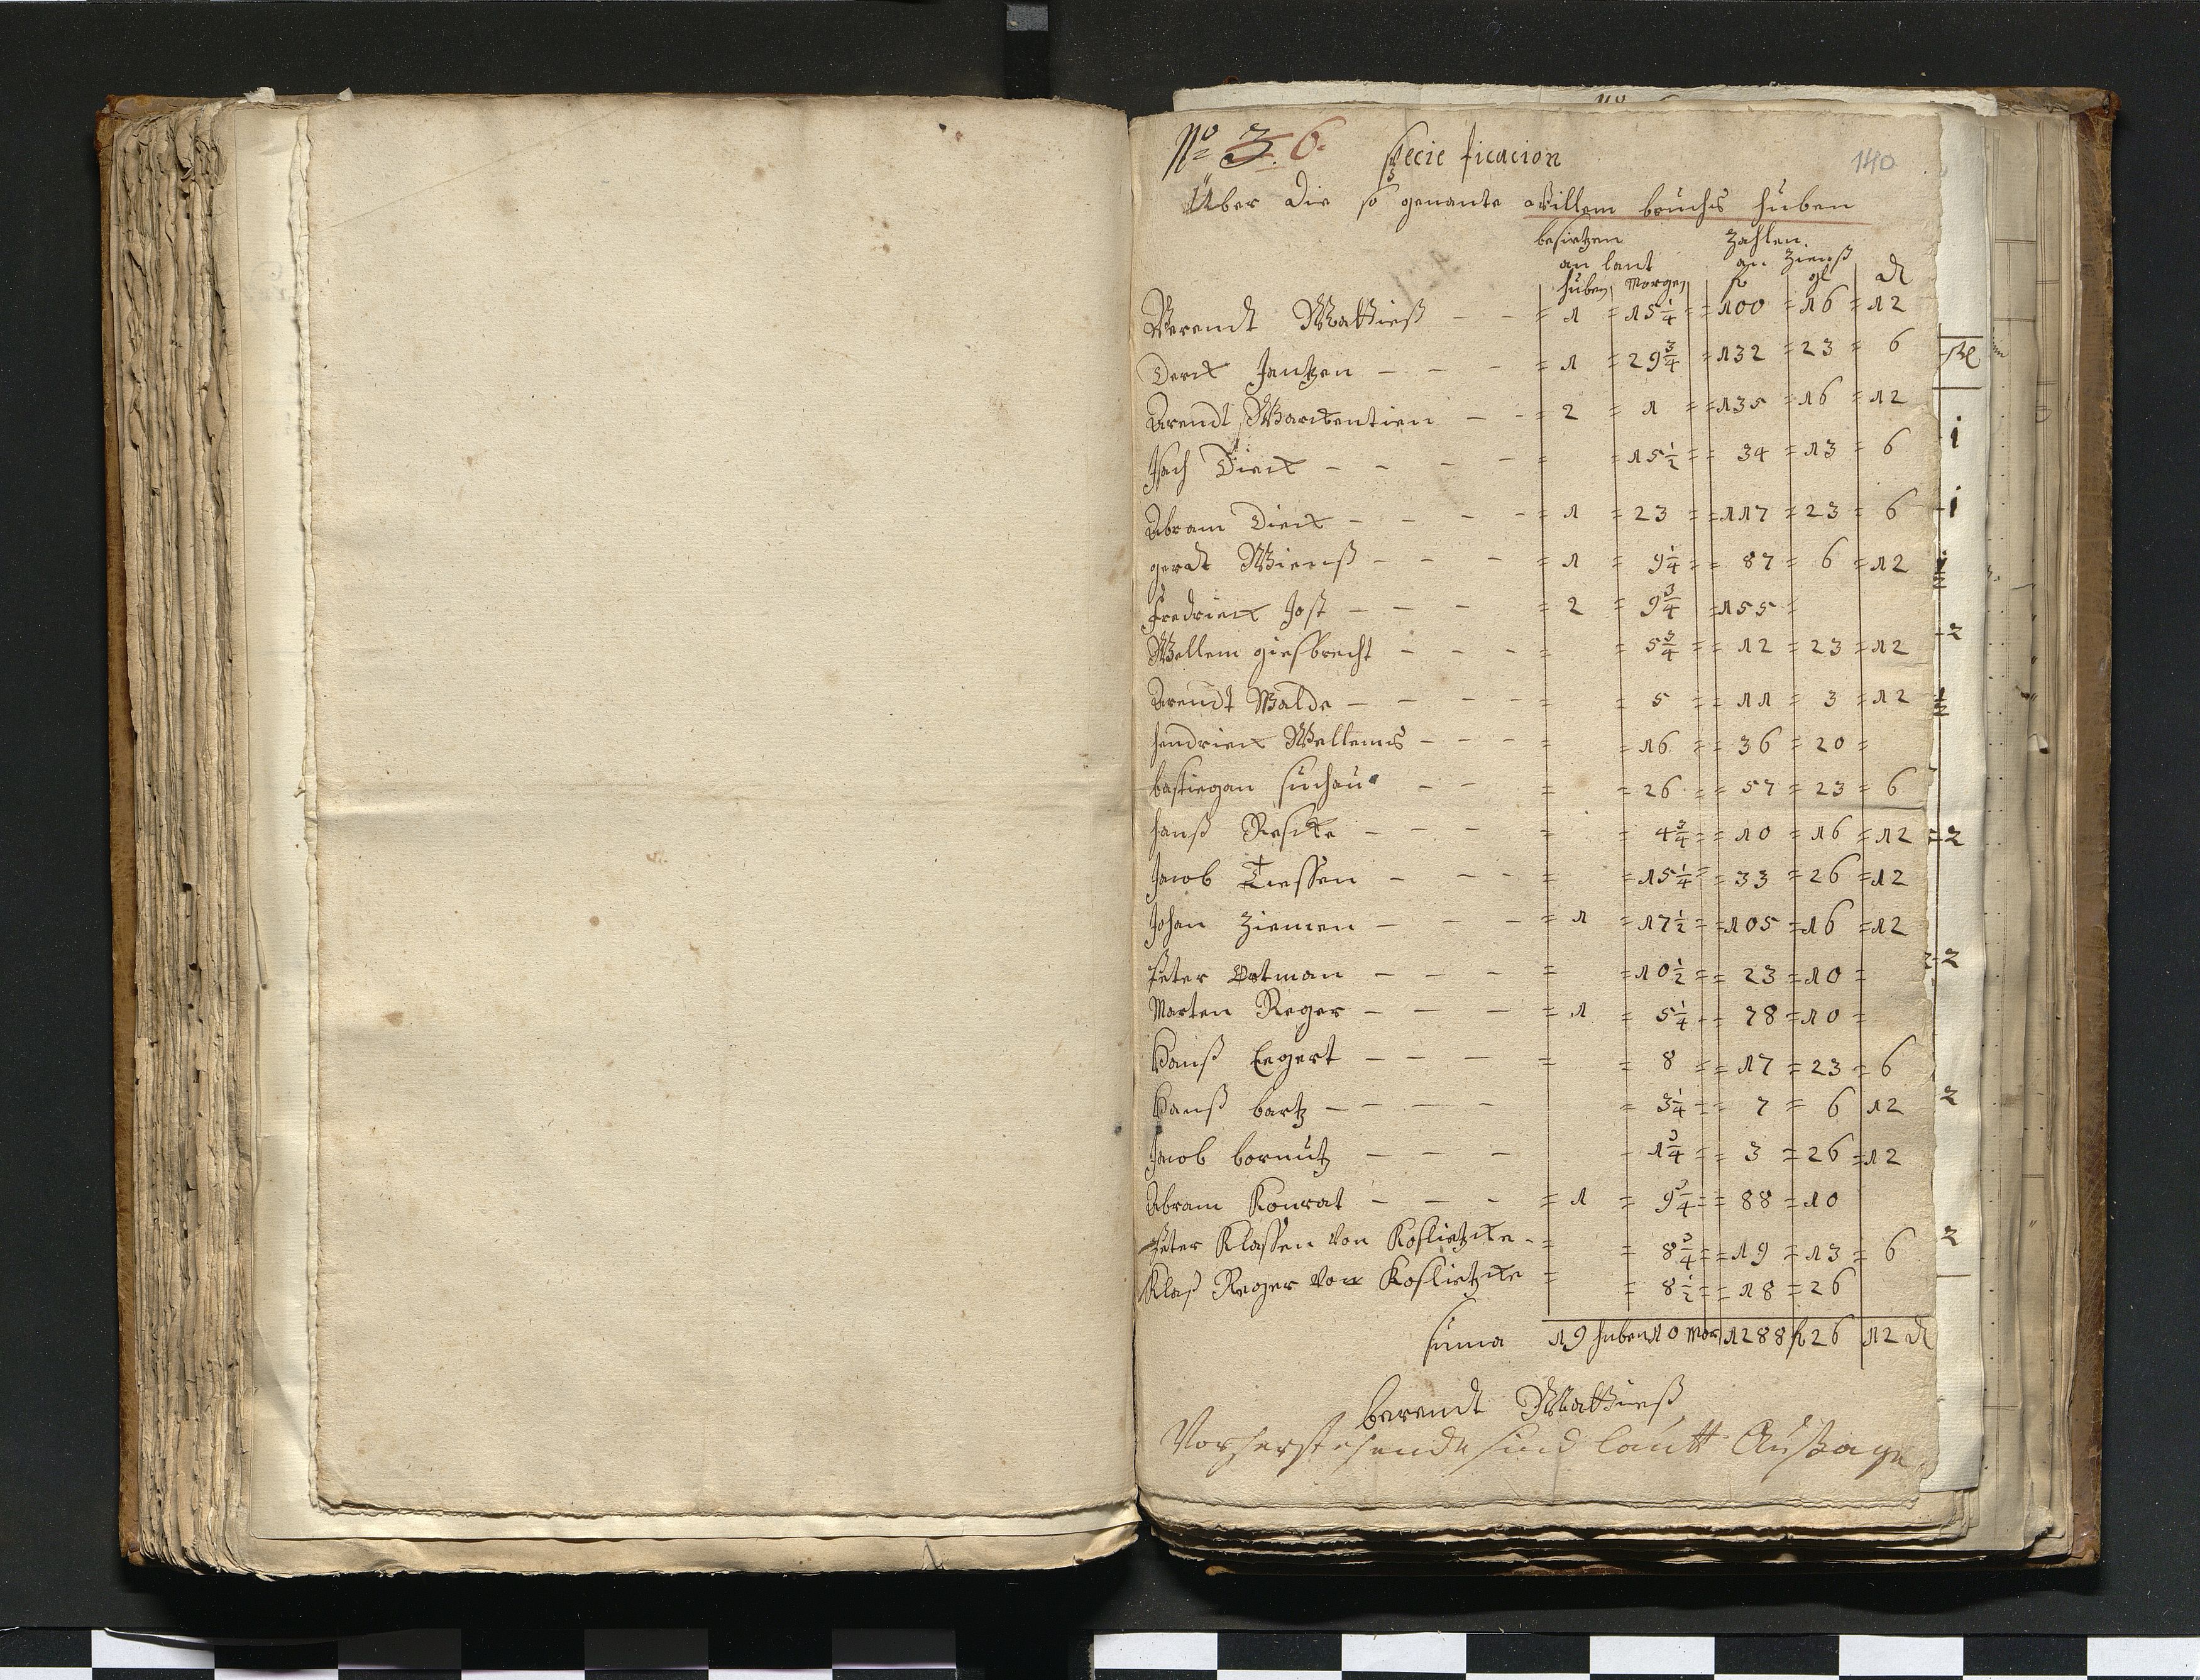 No 3. 6.
Specie ficacion
140
Über die so genante Willem bruchs huben
besietzen zahlen
an lant an Zienß
huben Morgen fl gl d
Berendt Mattieß - - = 1 = 15 1/4 = 100 = 16 = 12
Derck Jantzen - - - = 1 = 29 3/4 = 132 = 23 = 6
Arendt Warckentien - - = 2 = 1 = 135 = 16 = 12
Isach Dieck - - - - = = 15 1/2 = 34 = 13 = 6
Abram Dieck - - - - = 1 = 23 = 117 = 23 = 6
gerdt Wienß - - - = 1 = 9 1/4 = 87 = 6 = 12
Fredrieck Jost - - - = 2 = 9 3/4 = 155 =
Wellem giesbrecht - - - = = 5 3/4 = 12 = 23 = 12
Arendt Walde - - - - = = 5 = 11 = 3 = 12
hendrieck Wellems - - - = = 16 = 36 = 20 =
bastiegan suchau - - = = 26 = 57 = 23 = 6
hanß Reschke - - - = = 4 3/4 = 10 = 16 = 12
Jacob Tiessen - - - = = 15 1/4 = 33 = 26 = 12
Johan Ziemen - - - = 1 = 17 1/2 = 105 = 16 = 12
Peter Ortman - - - = = 10 1/2 = 23 = 10 =
Marten Reger - - - = 1 = 5 1/4 = 78 = 10 =
Hanß Eegert - - - = = 8 = 17 = 23 = 6
Hanß bartz - - - - = 3 1/4 = 7 = 6 12
Jacob bornutz - - - - 1 3/4 = 3 = 26 = 12
Abram Konrat - - - = 1 = 9 3/4 = 88 = 10
Peter Klassen von Koslietzcke - = = 8 3/4 = 19 = 13 = 6
Klaß Reger von Koslietzcke = = 8 1/2 = 18 = 26
suma 19 huben 10 Mor 1288 fl 26 12 d
berendt Mattieß
Vorherstehende sind lautt Außage